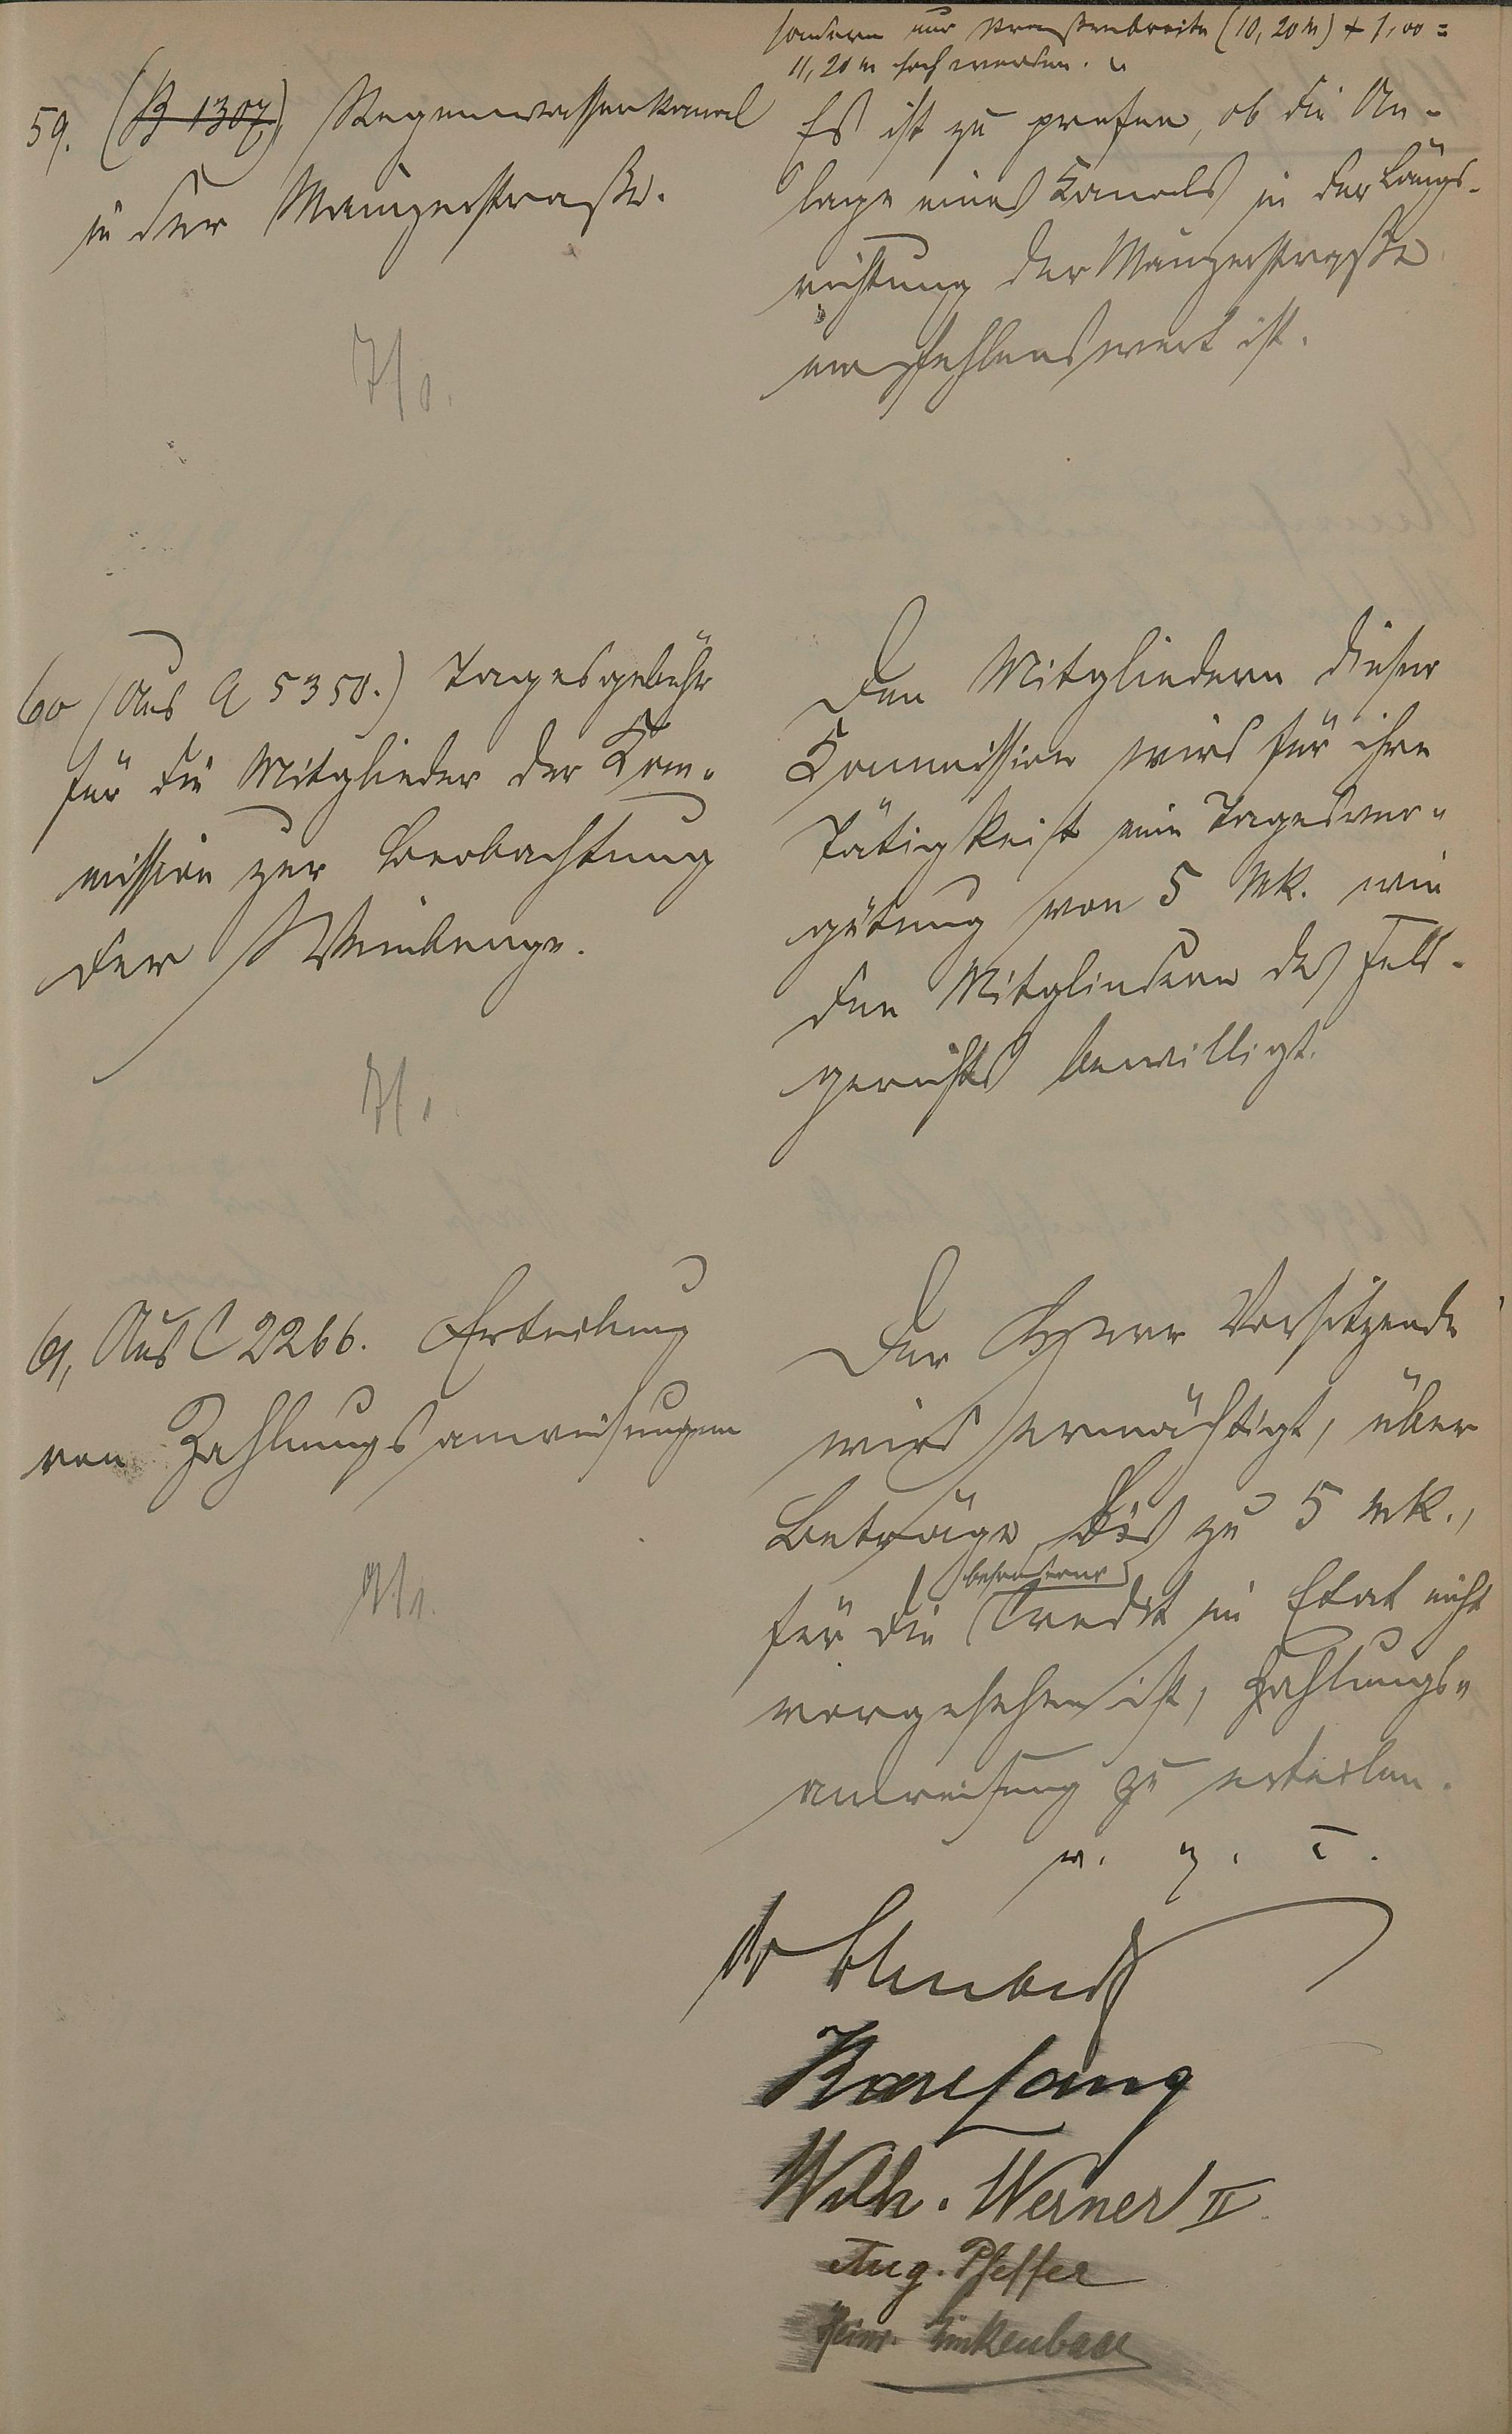 sondern nur Straßenbreite (10,20 m) + 1,00 =
11,20 m hoch werden.
59. (B 1307), Regenwasserkanal
in der Mainzerstraße.
Es ist zu prüfen, ob die An-
lage eines Kanals in der Längs-
richtung der Mainzerstraße
empfehlenswert ist.
60 (Aus A 5350.) Tagesgebühr
für die Mitglieder der Kom-
mission zur Beobachtung
der Weinberge.
Den Mitgliedern dieser
Kommission wird für ihre
Tätigkeit eine Tagesver-
gütung von 5 Mk. wie
den Mitgliedern des Feld-
gerichts bewilligt.
61, Aus C 2266. Erteilung
von Zahlungsanweisungen
Der Herr Vorsitzende
wird ermächtigt, über
Beträge bis zu 5 Mk.,
besonderer
für die Credit im Etat nicht
vorgesehen ist, Zahlungs-
anweisung zu erteilen.
v. g. u.
Wilh. Werner II
Aug. Pfeffer